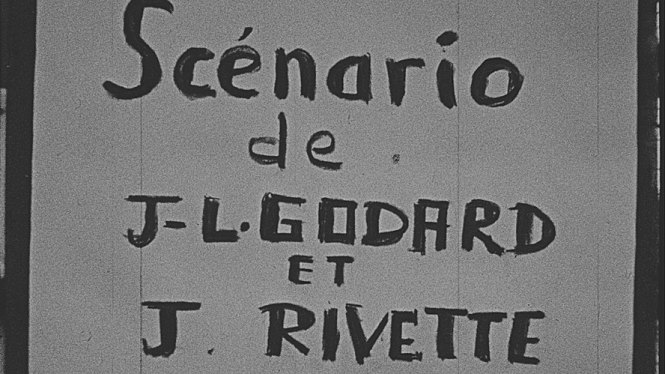 Scénario
de
J-L. GODARD
ET
J. RIVETTE